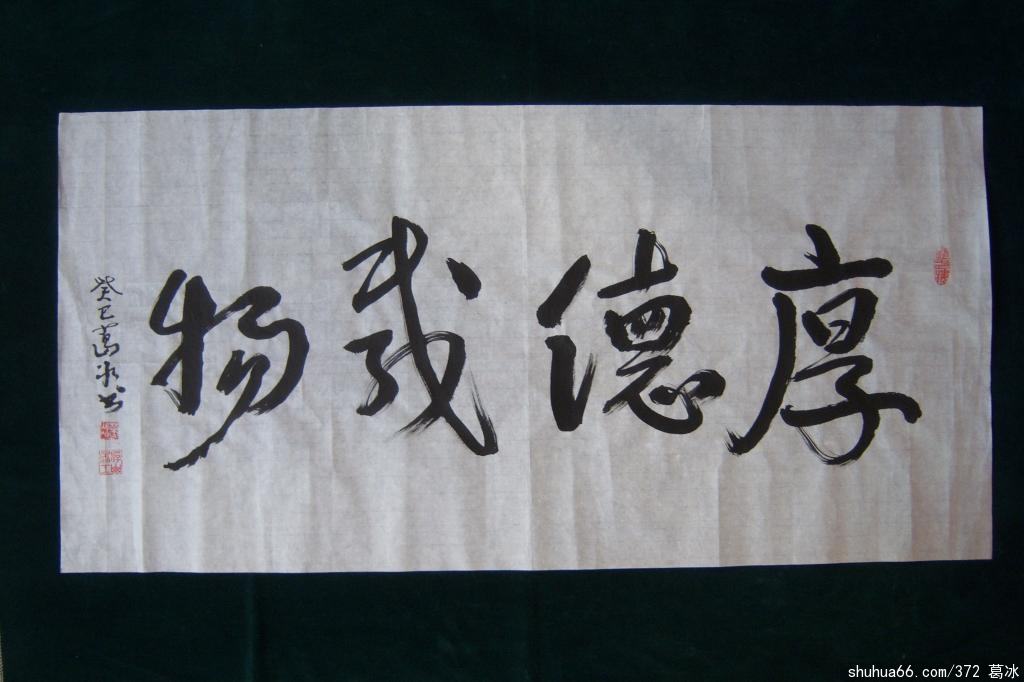 厚德载物
癸巳葛冰书
shuhua66.com/372 葛冰